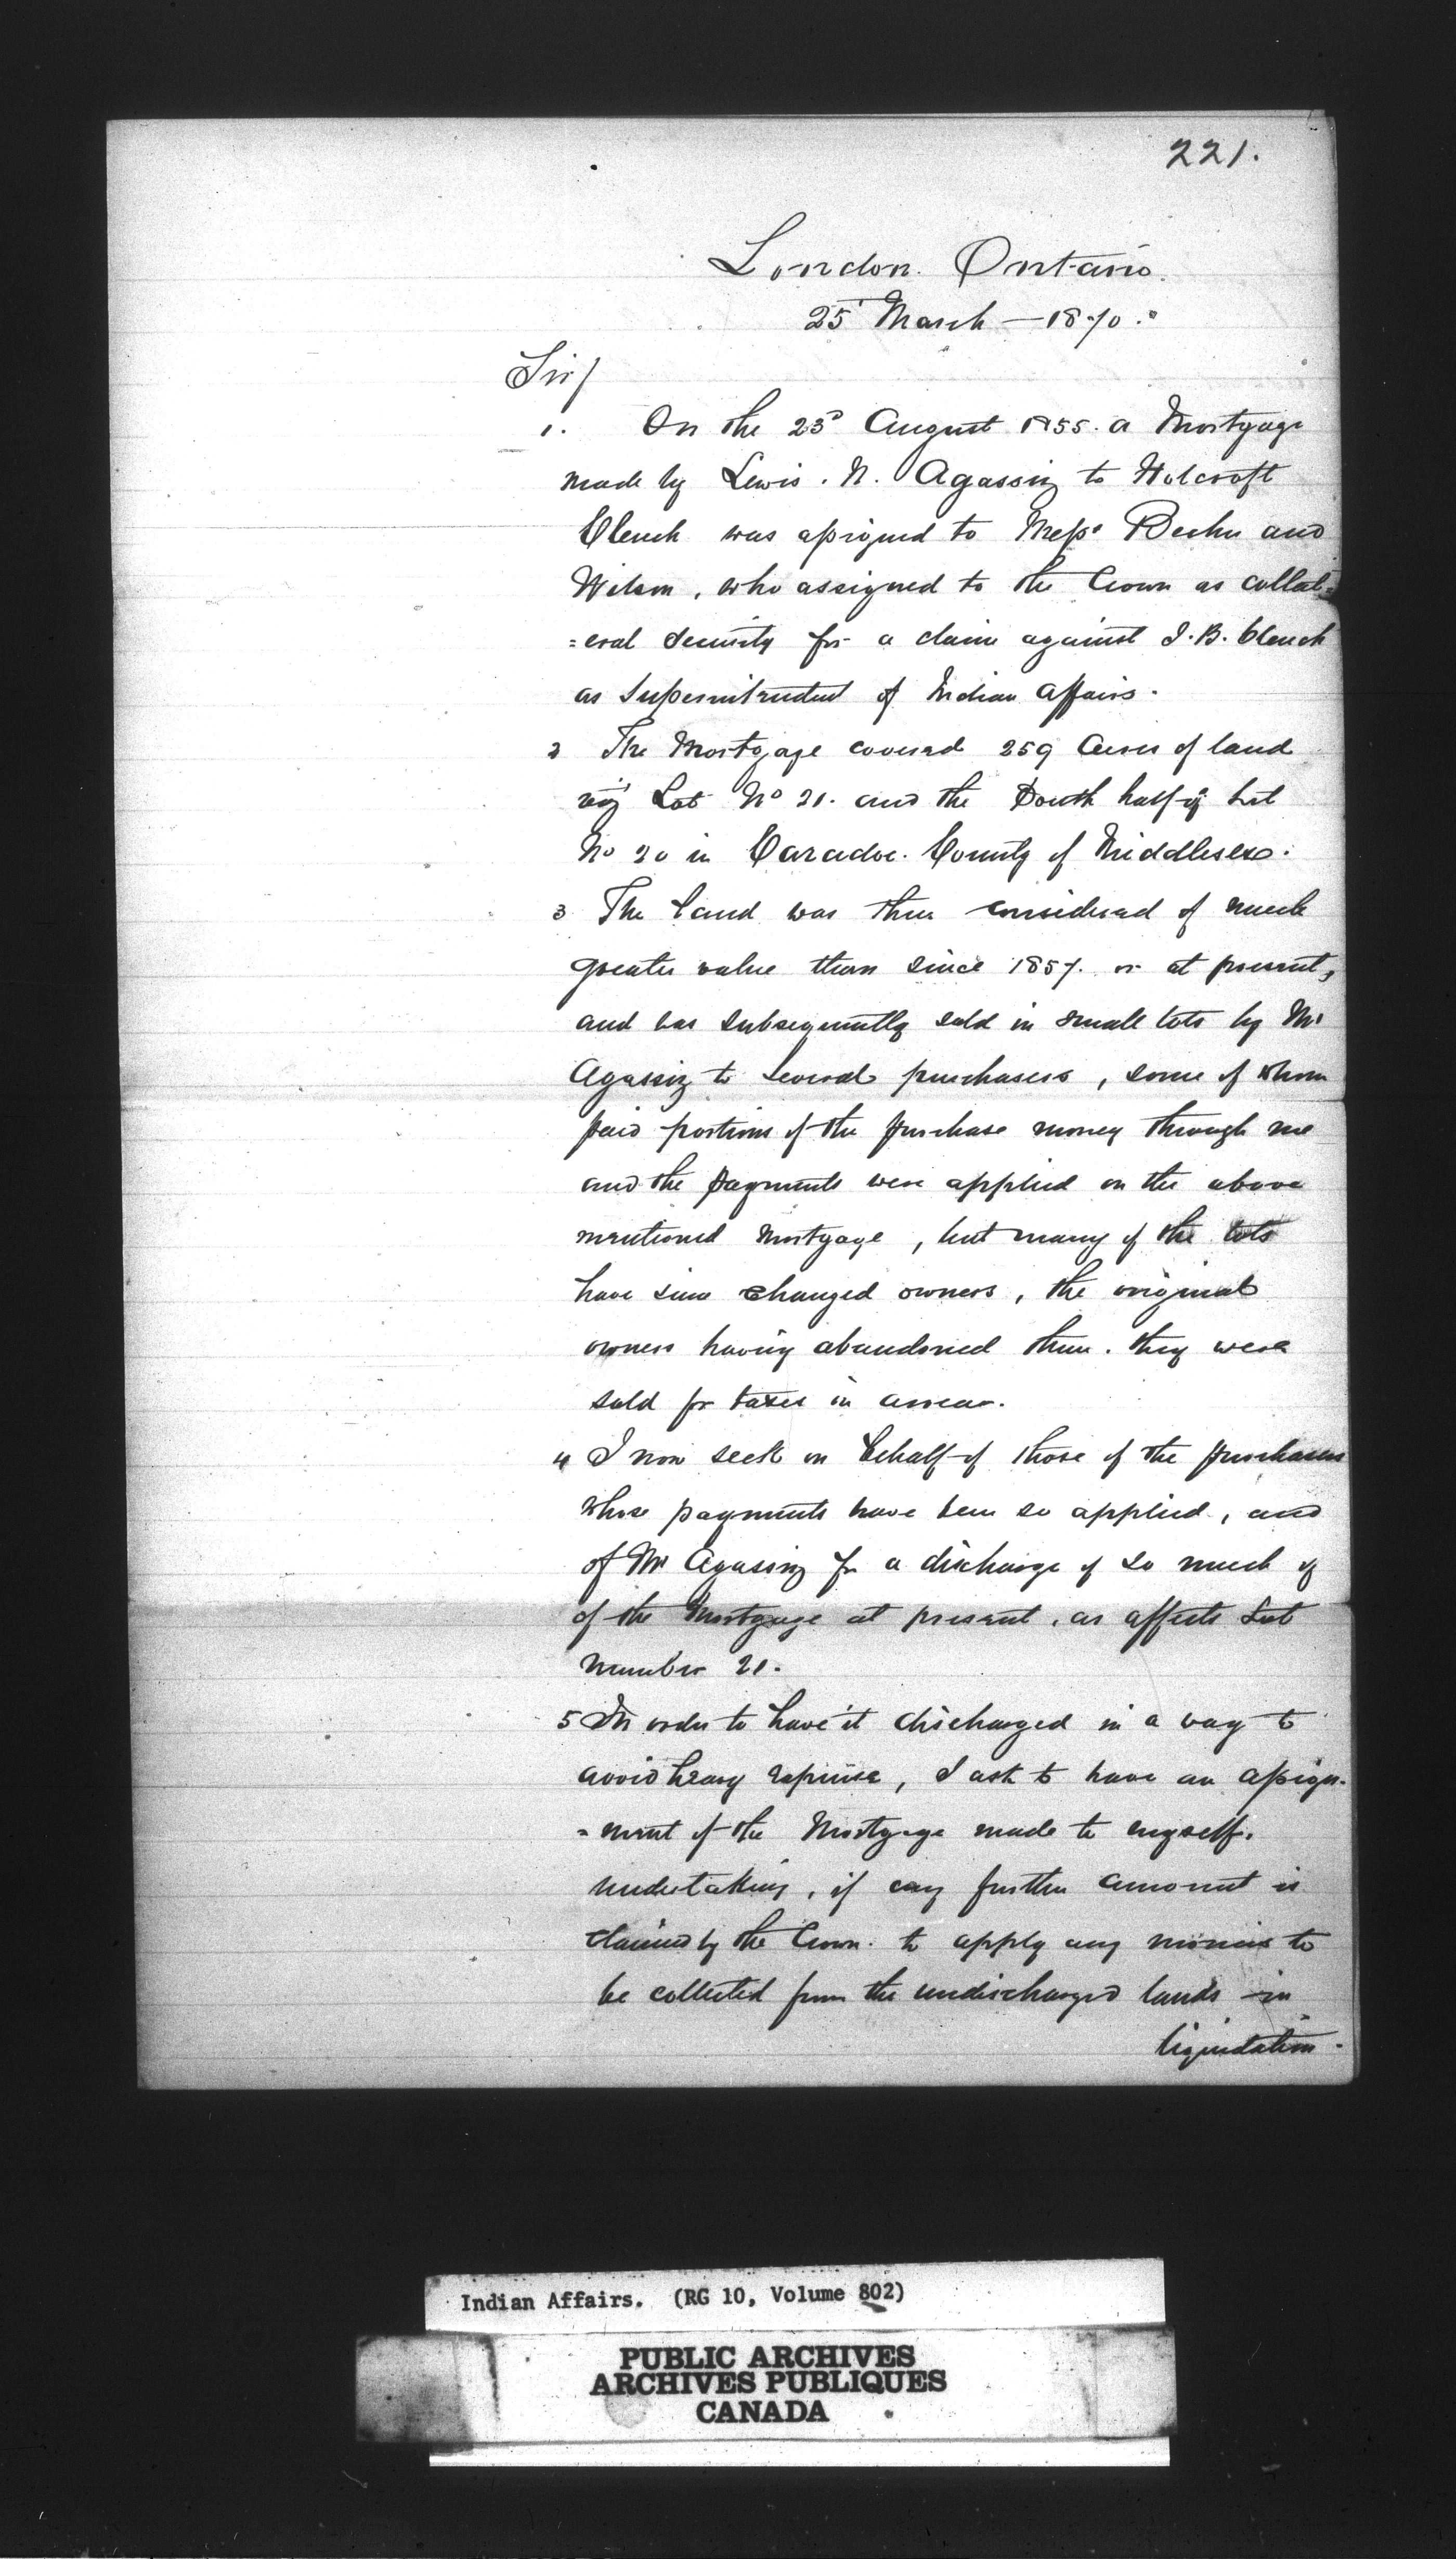 221.
London. Ontario.
25 March — 1870.
Sir/
1. On the 23d August 1855. a Mortgage
made by Lewis. N. Agassiz to Holcroft
Clench was assigned to Messrs Becher and
Wilson, who assigned to the Crown as collat=
=eral security for a claim against J. B. Clench
as Superintendent of Indian Affairs.
2 The Mortgage covered 259 Acres of land
viz Lot No 21. and the South half of Lot
No 20 in Caradoc. County of Middlesex.
3 The land was then considered of much
greater value than since 1857. or at present,
and was subsequently sold in small lots by Mr
Agassiz to several purchasers, some of whom
paid portions of the purchase money through me
and the payments were applied on the above
mentioned mortgage, but many of the lots
have since changed owners, the original
owners having abandoned them. they were
sold for taxes in arrear.
4 I now seek on behalf of those of the purchasers
whose payments have been so applied, and
of Mr Agassiz for a discharge of so much of
of the Mortgage at present, as affects Lot
number 21.
5 In order to have it discharged in a way to
avoid heavy expense, I ask to have an assign-
=ment of the Mortgage made to myself.
undertaking, if any further amount is
claimed by the Crown. to apply any monies to
be collected from the undischarged lands in
liquidation.
Indian Affairs. (RG 10, Volume 802)
PUBLIC ARCHIVES
ARCHIVES PUBLIQUES
CANADA